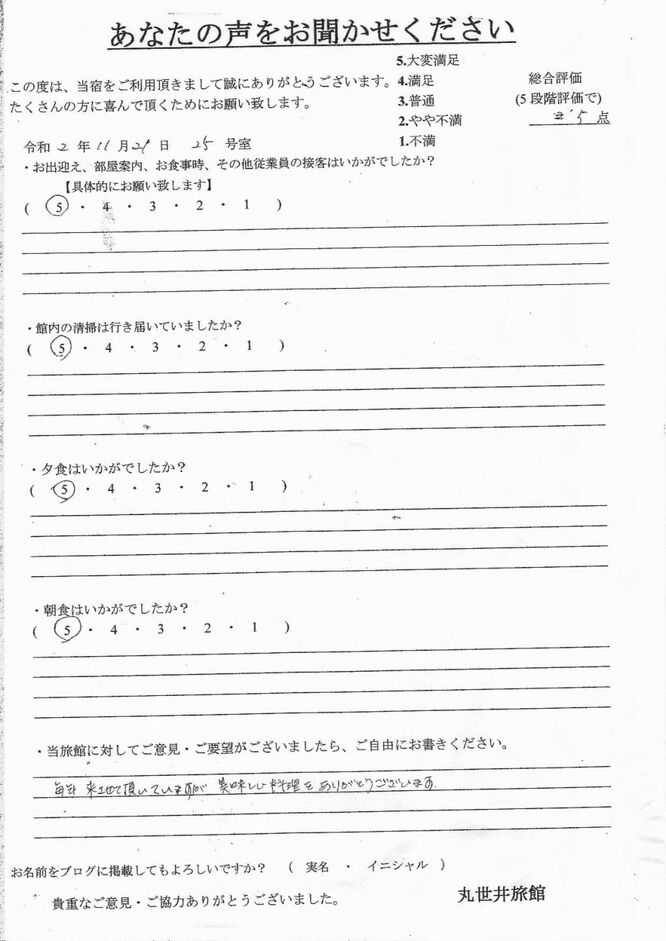 あなたの声をお聞かせください
この度は、当宿をご利用頂きまして誠にありがとうございます。
たくさんの方に喜んで頂くためにお願い致します。
5.大変満足
4.満足
3.普通
2.やや不満
1.不満
総合評価
(5段階評価で)
5点
令和 2 年 11 月 29 日 25 号室
・お出迎え、部屋案内、お食事時、その他従業員の接客はいかがでしたか？
【具体的にお願い致します】
( 5 ・ 4 ・ 3 ・ 2 ・ 1 )
・館内の清掃は行き届いていましたか？
( 5 ・ 4 ・ 3 ・ 2 ・ 1 )
・夕食はいかがでしたか？
( 5 ・ 4 ・ 3 ・ 2 ・ 1 )
・朝食はいかがでしたか？
( 5 ・ 4 ・ 3 ・ 2 ・ 1 )
・当旅館に対してご意見・ご要望がございましたら、ご自由にお書きください。
頂いていますが 美味しい料理をありがとうございます。
お名前をブログに掲載してもよろしいですか？ ( 実名 ・ イニシャル )
貴重なご意見・ご協力ありがとうございました。
丸世井旅館